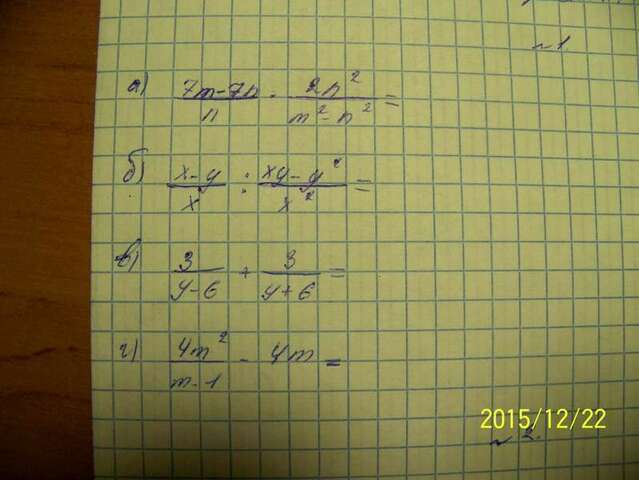 ~1
а) (7m-7n)/n · (2n²)/(m²-n²) =
б) (x-y)/x : (xy-y²)/x² =
в) 3/(y-6) + 3/(y+6) =
г) 4m²/(m-1) - 4m =
2015/12/22
~2.